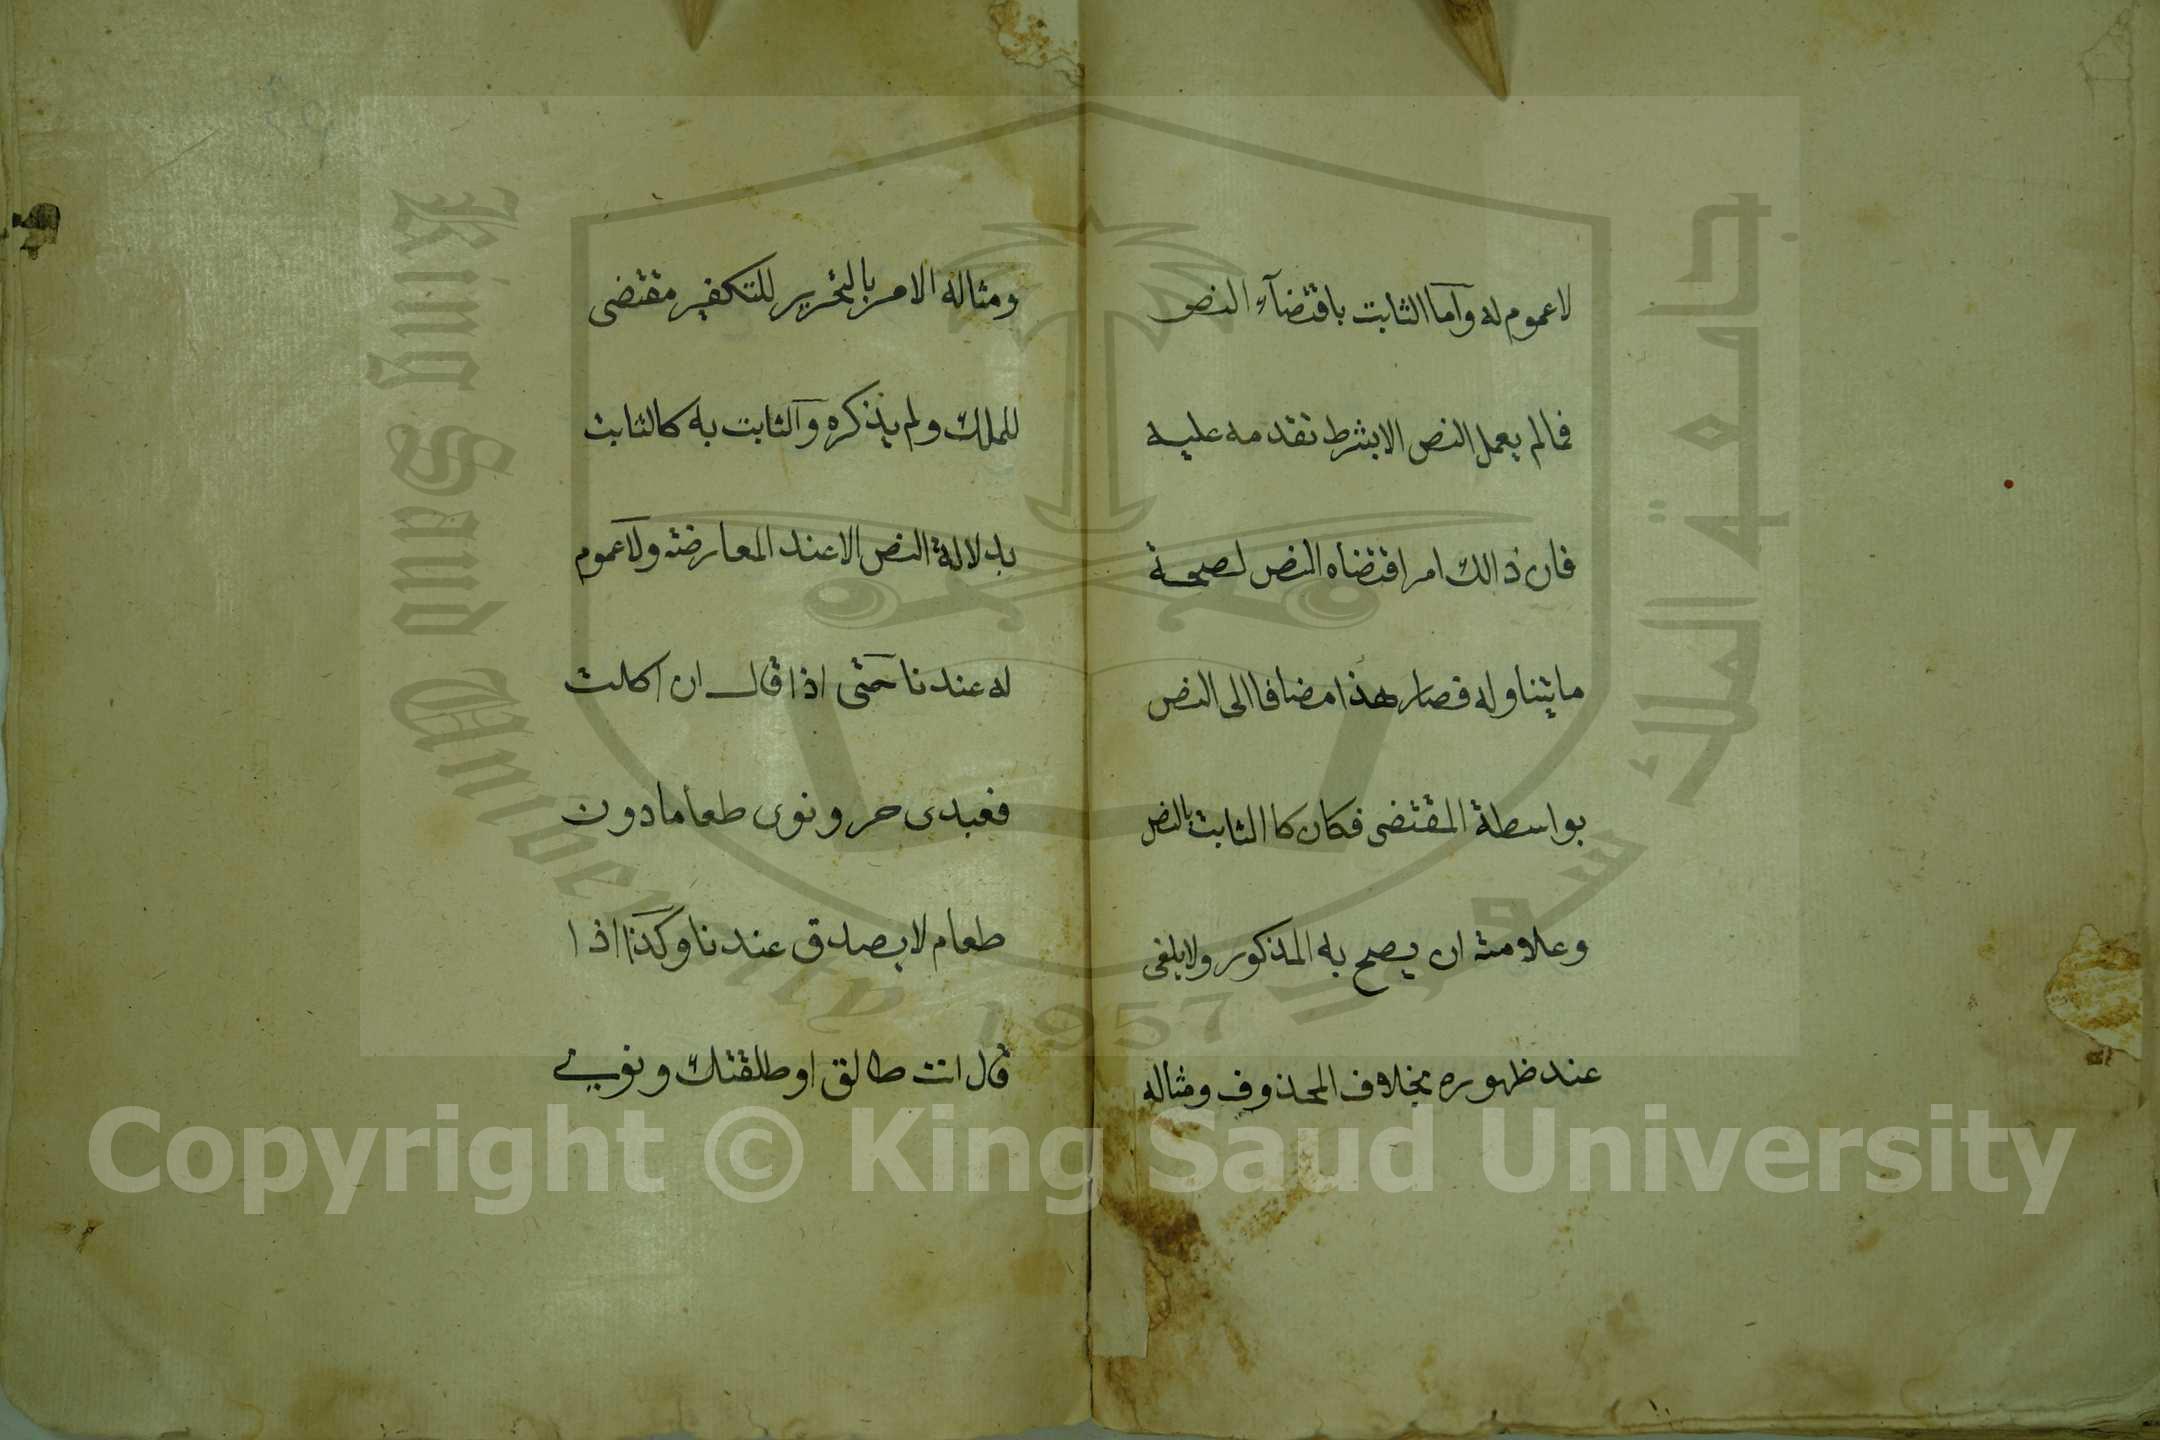 لا عموم له وآما الثابت باقتضآء النص
فما لم يعمل النص الا بشرط تقدمه عليه
فان ذالك امر اقتضاه النص لصحة
ما يتناوله فصار هذا مضافا الى النص
بواسطة المقتضى فكان كاالثابت بالنص
وعلامته ان يصح به المذكور ولا يلغى
عند ظهوره بخلاف المحذوف ومثاله
ومثاله الامر بالتحرير للتكفير مقتضى
للملك ولم يذكره والثابت به كالثابت
بدلالة النص الا عند المعارضة ولا عموم
له عندنا حتى اذا قال ان اكلت
فعبدى حر ونوى طعاما دون
طعام لا يصدق عندنا وكذا اذا
قال انت طالق او طلقتك ونوى
جامعة الملك سعود
King Saud University
1957
Copyright © King Saud University